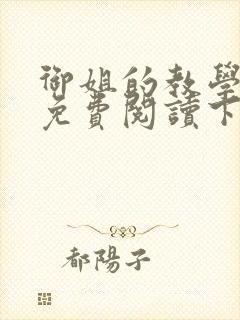 御姐的教學
免費閱讀下
都陽子